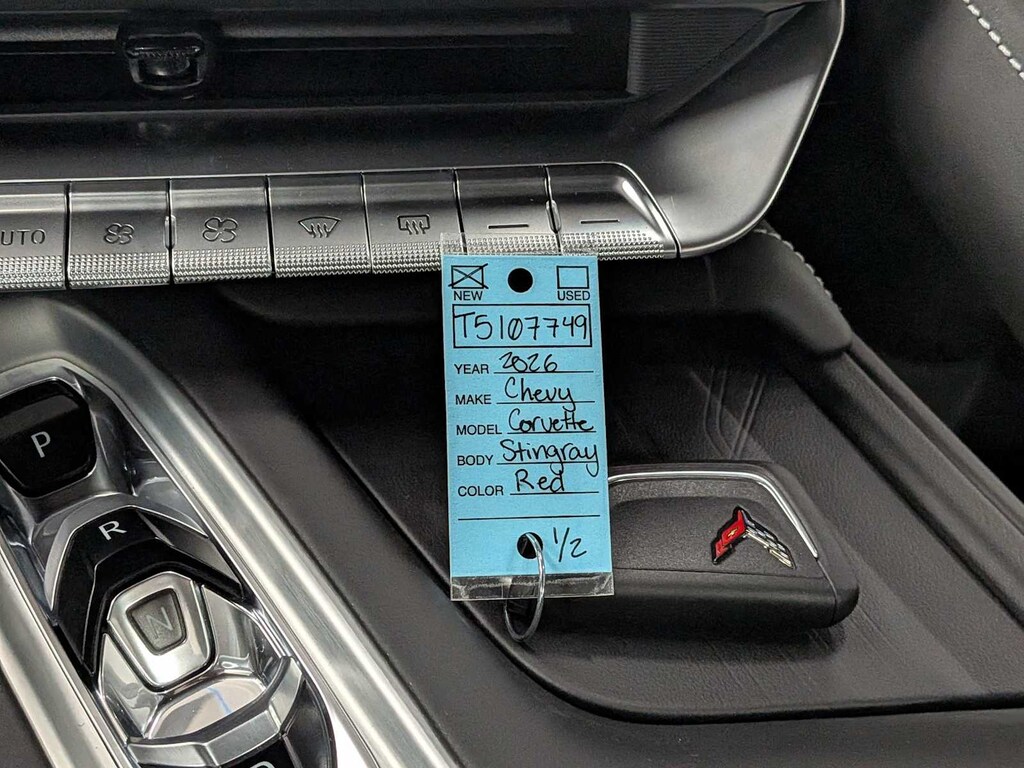 AUTO
NEW
USED
T5107749
YEAR 2026
MAKE Chevy
MODEL Corvette
BODY Stingray
COLOR Red
1/2
P
R
N